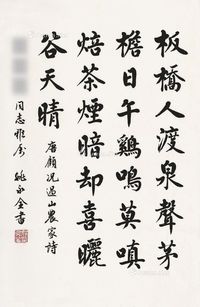 板橋人渡泉聲茅
檐日午鷄鳴莫嗔
焙茶煙暗却喜曬
谷天晴
唐顧況過山農家詩
同志雅屬
姚永全書